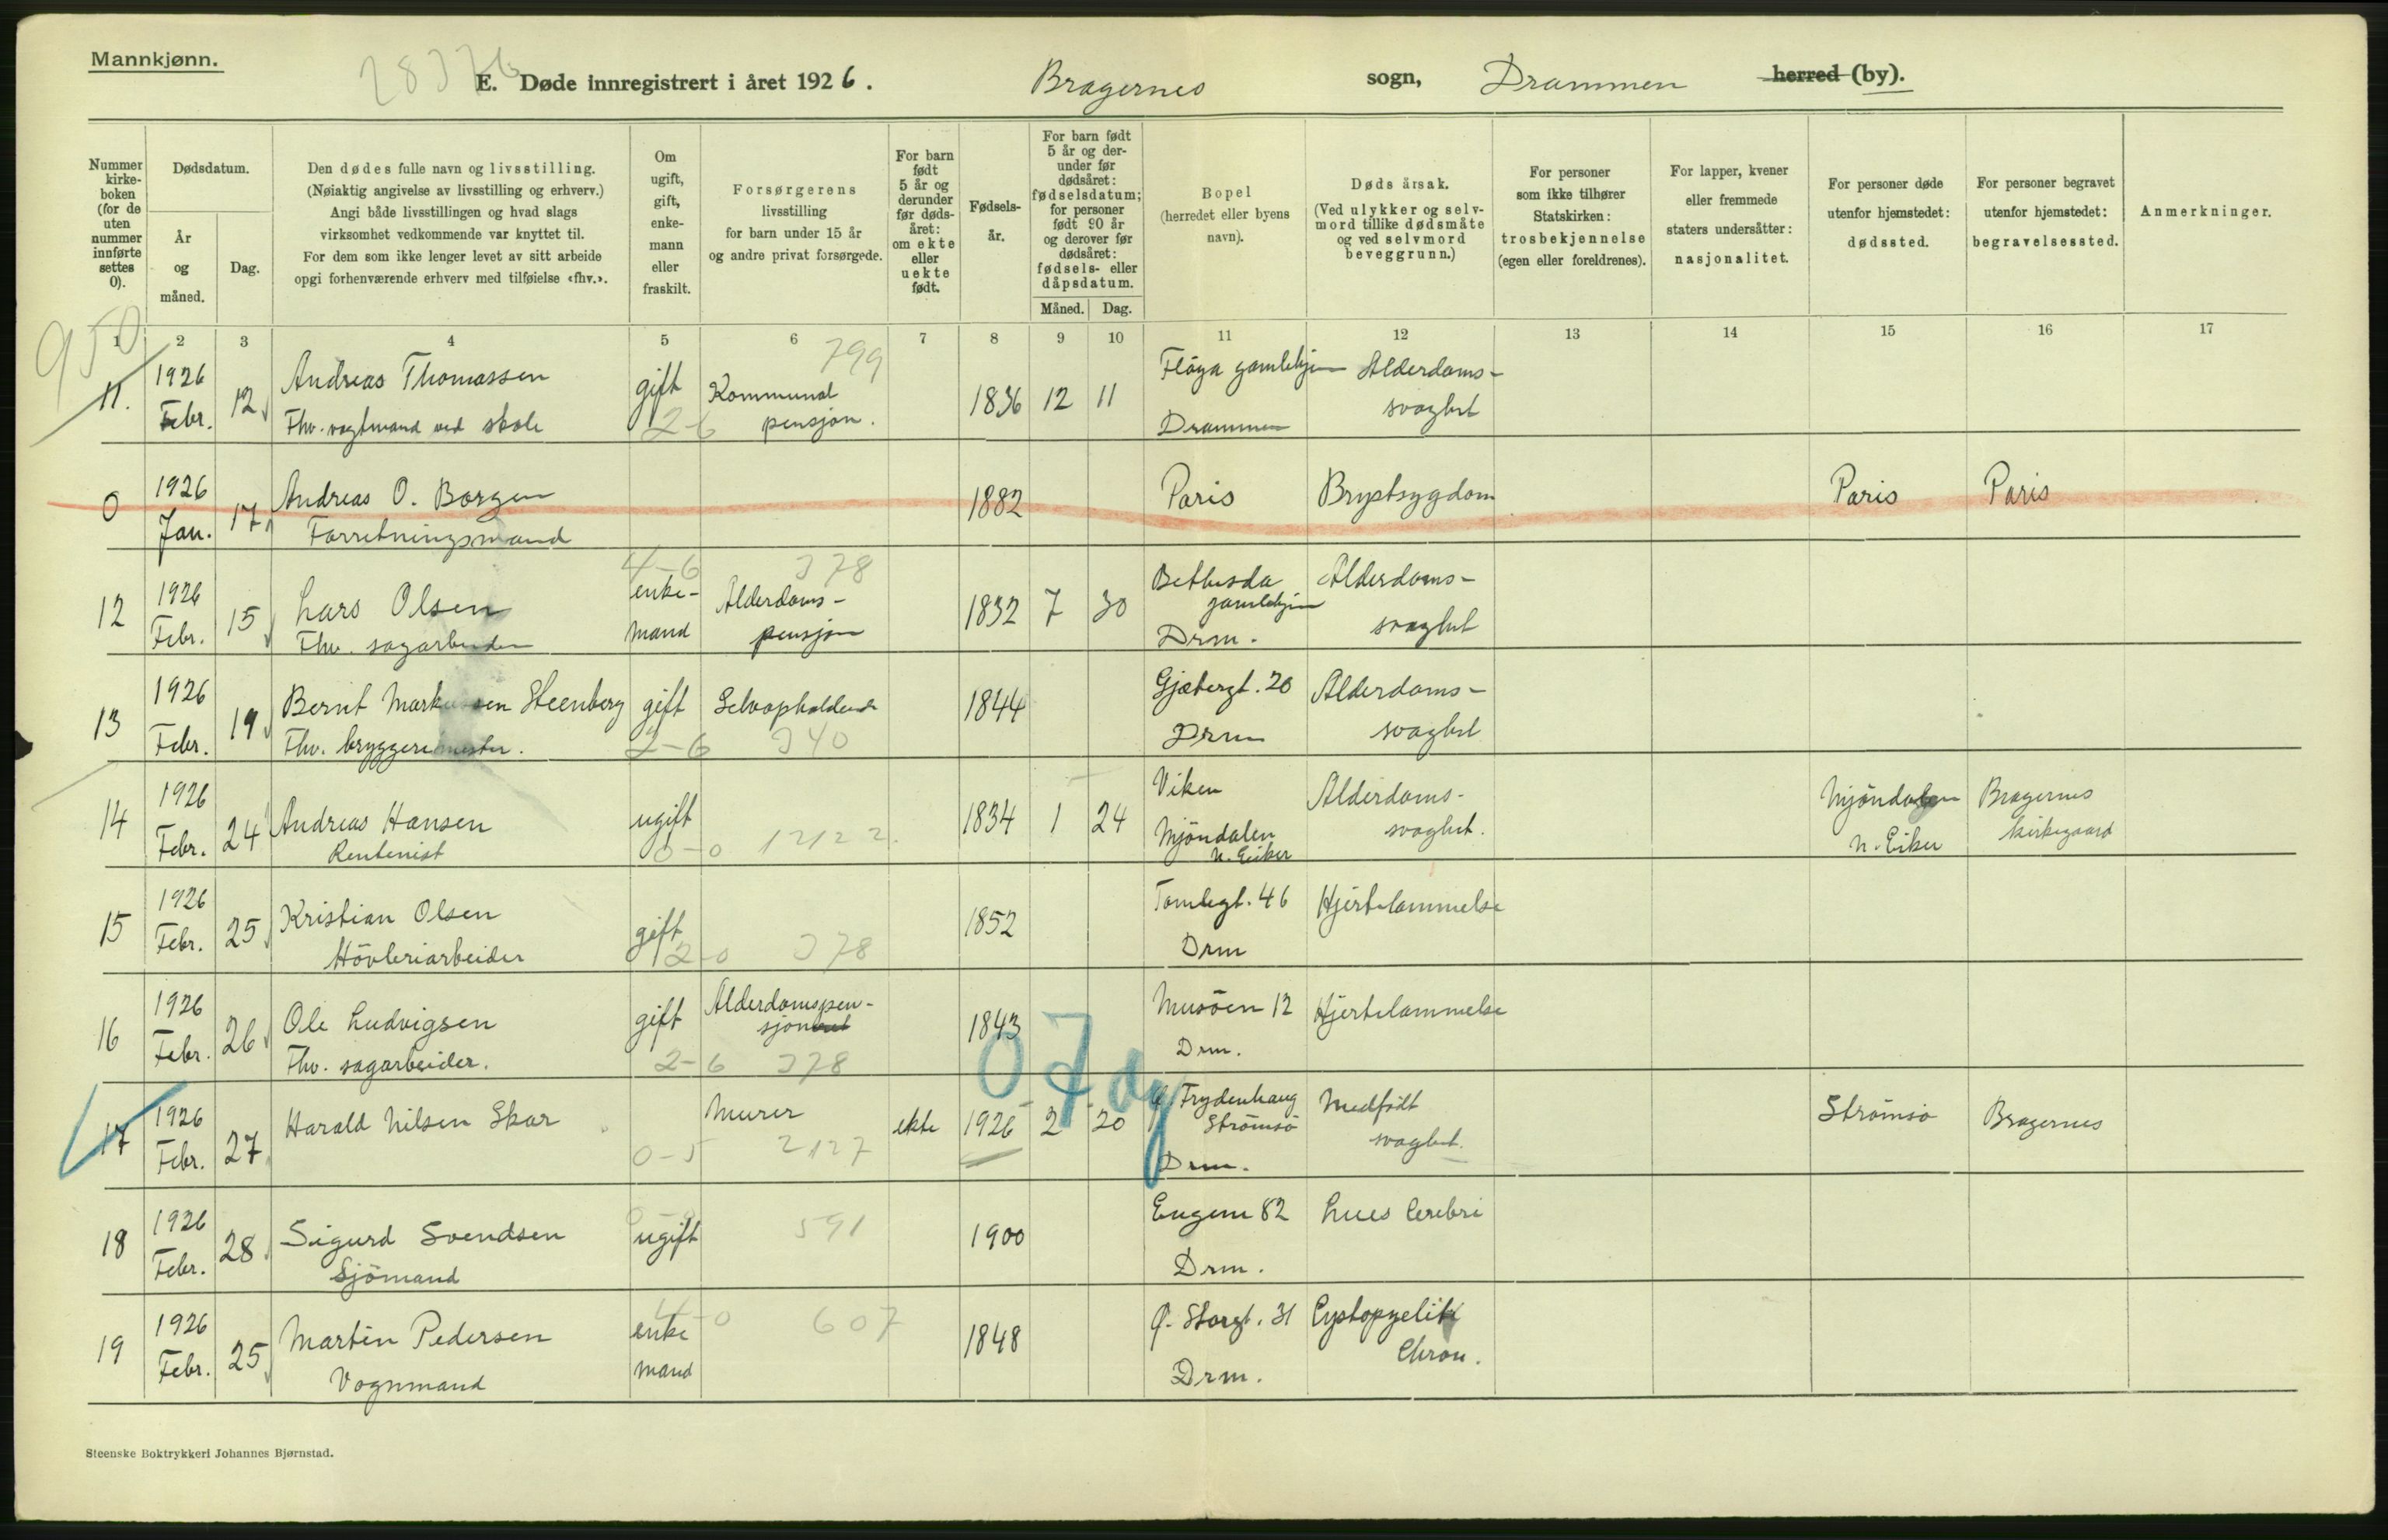 Mannkjønn.
E. Døde innregistrert i året 1926. Bragernes sogn, Drammen herred (by).
Nummer
kirke-
boken
(for de
uten
nummer
innførte
settes
0).
Dødsdatum.
År
og
måned.
Dag.
Den dødes fulle navn og livsstilling.
(Nøiaktig angivelse av livsstilling og erhverv.)
Angi både livsstillingen og hvad slags
virksomhet vedkommende var knyttet til.
For dem som ikke lenger levet av sitt arbeide
opgi forhenværende erhverv med tilføielse «fhv.».
Om
ugift,
gift,
enke-
mann
eller
fraskilt.
Forsørgerens
livsstilling
for barn under 15 år
og andre privat forsørgede.
For barn
født
5 år og
derunder
før døds-
året:
om ekte
eller
uekte
født.
Fødsels-
år.
For barn født
5 år og der-
under før
dødsåret:
fødselsdatum;
for personer
født 90 år
og derover før
dødsåret:
fødsels- eller
dåpsdatum.
Måned. Dag.
Bopel
(herredet eller byens
navn).
Døds årsak.
(Ved ulykker og selv-
mord tillike dødsmåte
og ved selvmord
beveggrunn.)
For personer
som ikke tilhører
Statskirken:
trosbekjennelse
(egen eller foreldrenes).
For lapper, kvener
eller fremmede
staters undersåtter:
nasjonalitet.
For personer døde
utenfor hjemstedet:
dødssted.
For personer begravet
utenfor hjemstedet:
begravelsessted.
Anmerkninger.
1 2 3 4 5 6 7 8 9 10 11 12 13 14 15 16 17
950
799
11. 1926 Febr. 12 Andreas Thomassen gift Kommunal 1836 12 11 Fløya gamlehjem Alderdoms-
Fhv. vagtmand ved skole 2-6 pensjon. Drammen svaghet
0 1926 Jan. 17 Andreas O. Borgen 1882 Paris Brystsygdom Paris Paris
Forretningsmand
4-6 378
12 1926 Febr. 15 Lars Olsen enke- Alderdoms- 1832 7 30 Bethesda gamlehjem Alderdoms-
Fhv. sagarbeider mand pensjon Drm. svaghet
13 1926 Febr. 19 Bernt Markussen Steenberg gift Selvopholdende 1844 Gjætergt. 20 Alderdoms-
Fhv. bryggerimester. 2-6 340 Drm svaghet
14 1926 Febr. 24 Andreas Hansen ugift 1834 1 24 Viken Alderdoms- Mjöndalen Bragernes
Rentenist 0-0 12122 Mjöndalen N. Eiker svaghet. N. Eiker kirkegaard
15 1926 Febr. 25 Kristian Olsen gift 1852 Tomtegt. 46 Hjertelammelse
Hövleriarbeider 2-0 378 Drm
16 1926 Febr. 26 Ole Ludvigsen gift Alderdomspen- 1843 Musöen 12 Hjertelammelse
sjon
Fhv. sagarbeider. 2-6 378 Drm.
0 7 dg
17 1926 Febr. 27 Harald Nilsen Skar Murer ekte 1926 2 20 Frydenhaug Medfödt Strömsö Bragernes
0-5 2127 Strömsö Drm. svaghet.
18 1926 Febr. 28 Sigurd Svendsen ugift 591 1900 Eugene 82 Lues Cerebri
Sjömand Drm.
4-0 607
19 1926 Febr. 25 Martin Pedersen enke 1848 Ø. Storgt. 31 Cystopyelit
Vognmand mand Drm. Chron.
Steenske Boktrykkeri Johannes Bjørnstad.